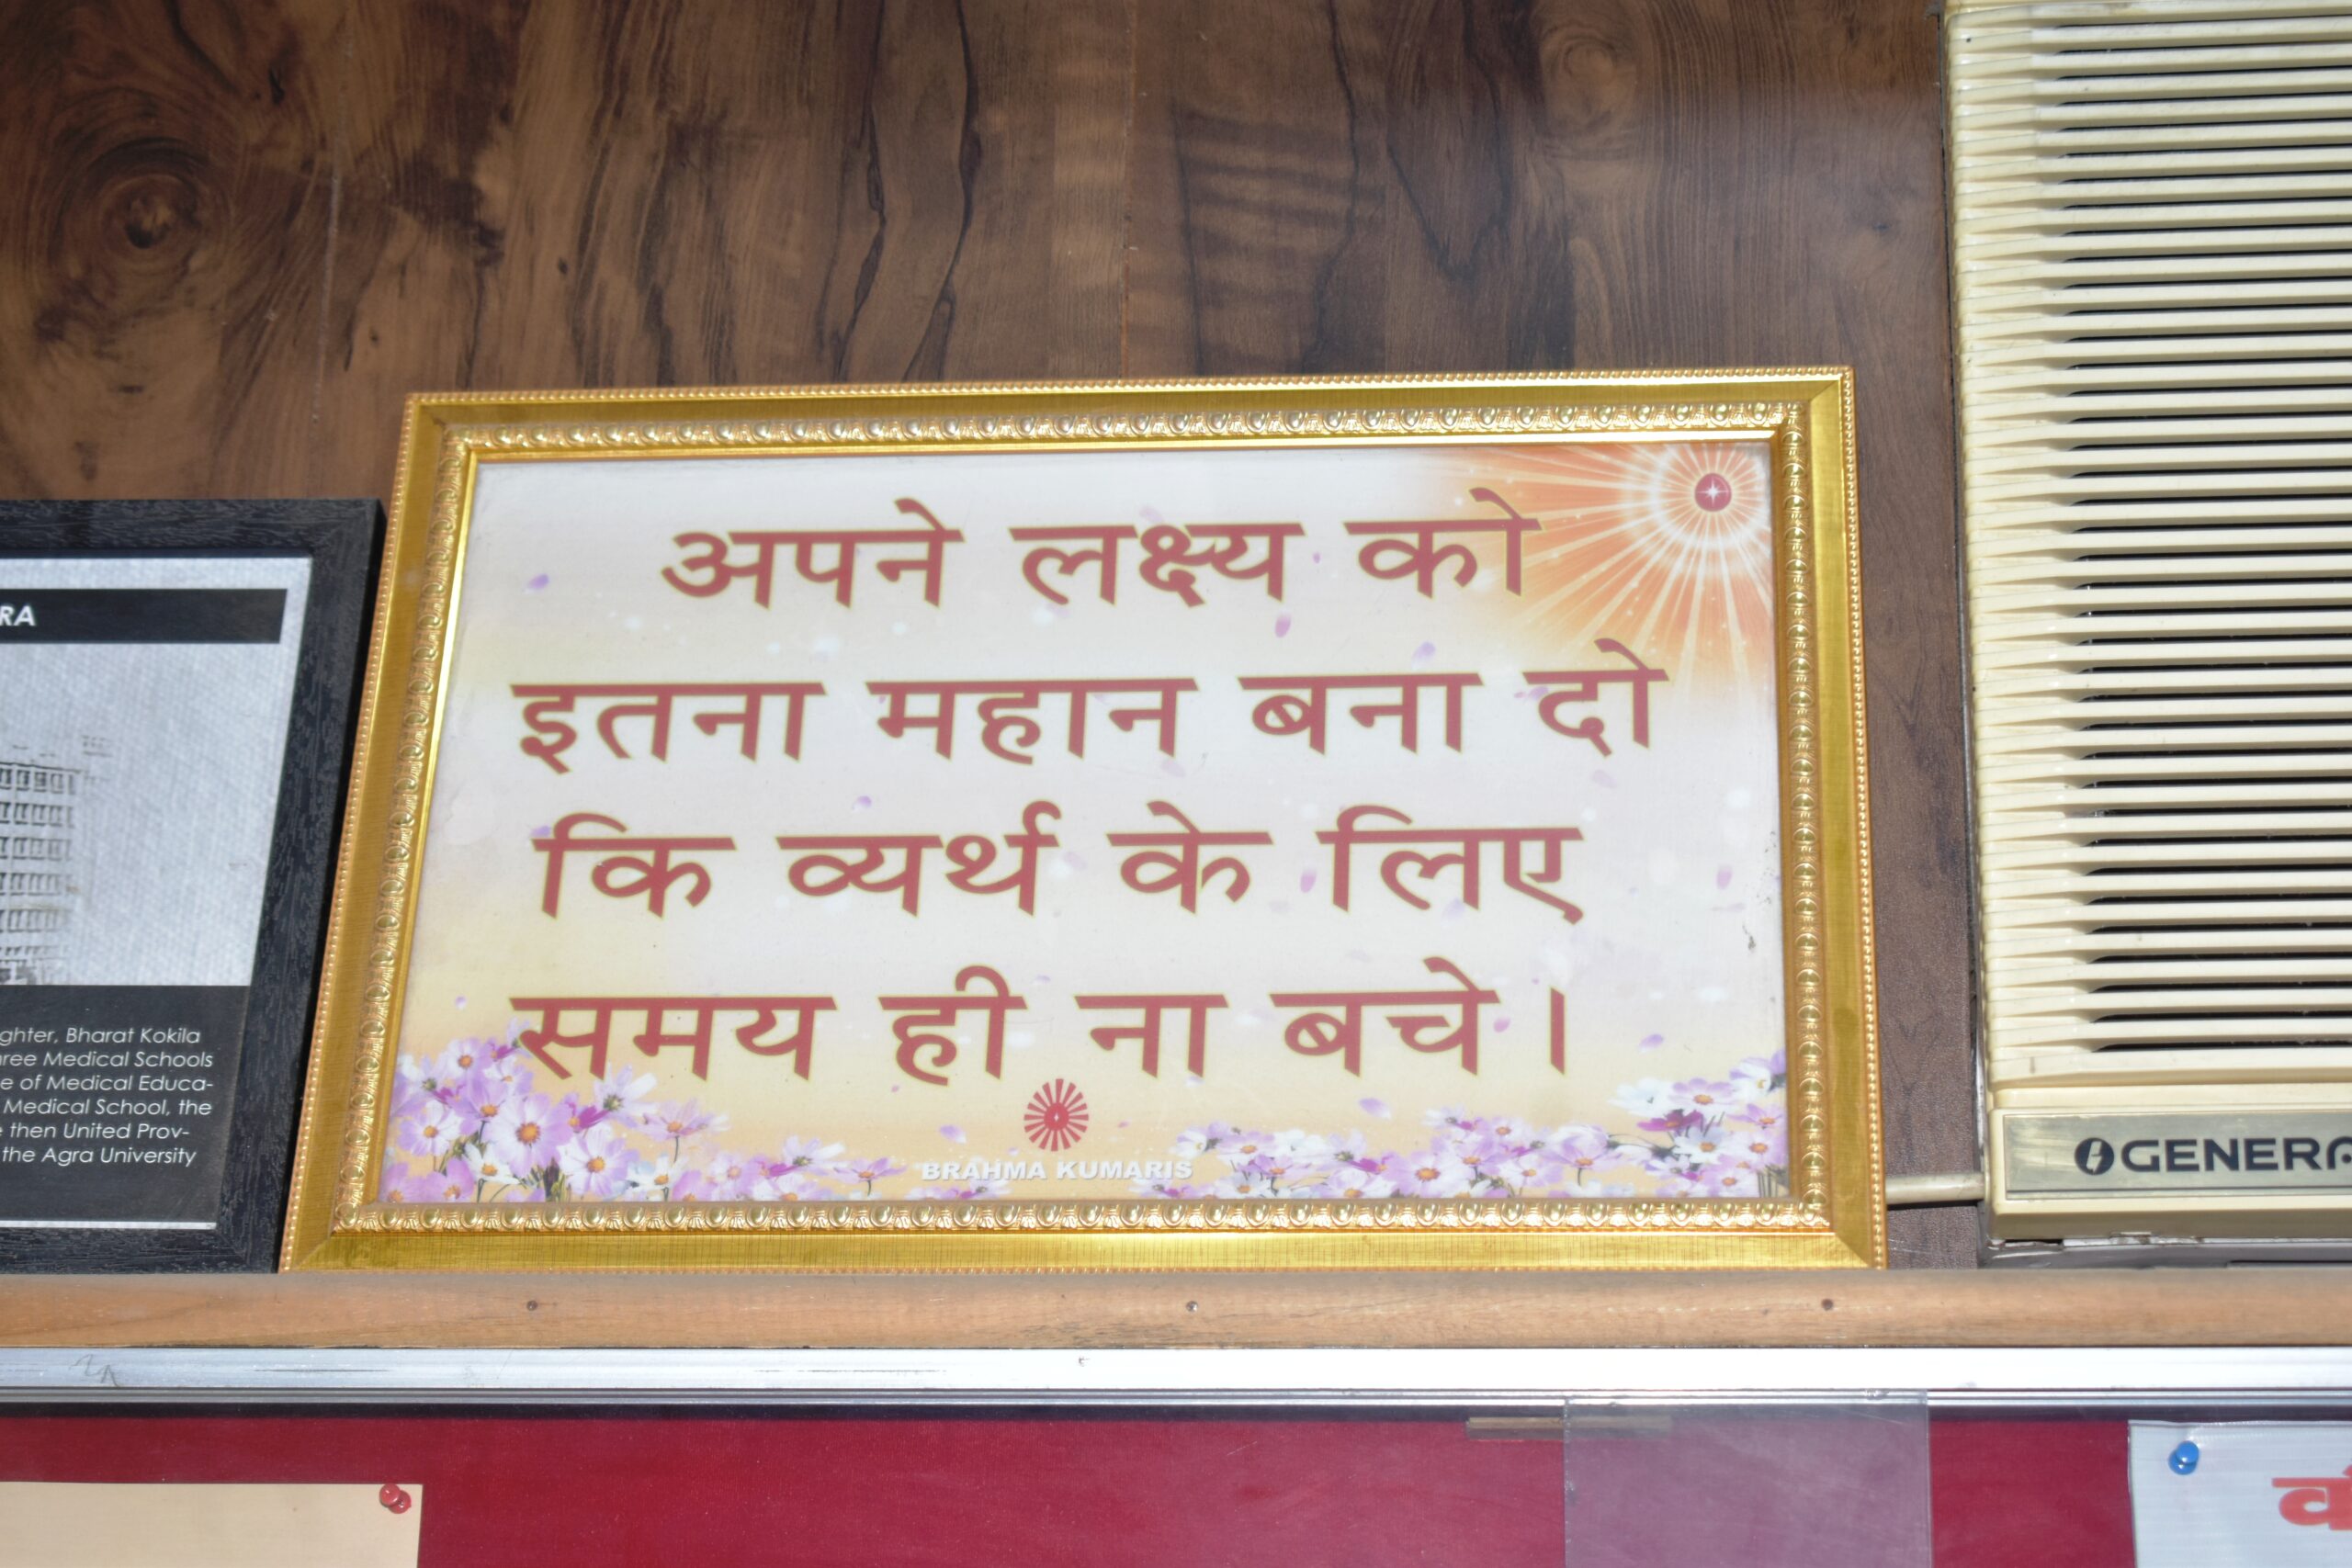 RA
ghter, Bharat Kokila
hree Medical Schools
e of Medical Educa-
Medical School, the
e then United Prov-
the Agra University
अपने लक्ष्य को
इतना महान बना दो
कि व्यर्थ के लिए
समय ही ना बचे।
BRAHMA KUMARIS
GENERA